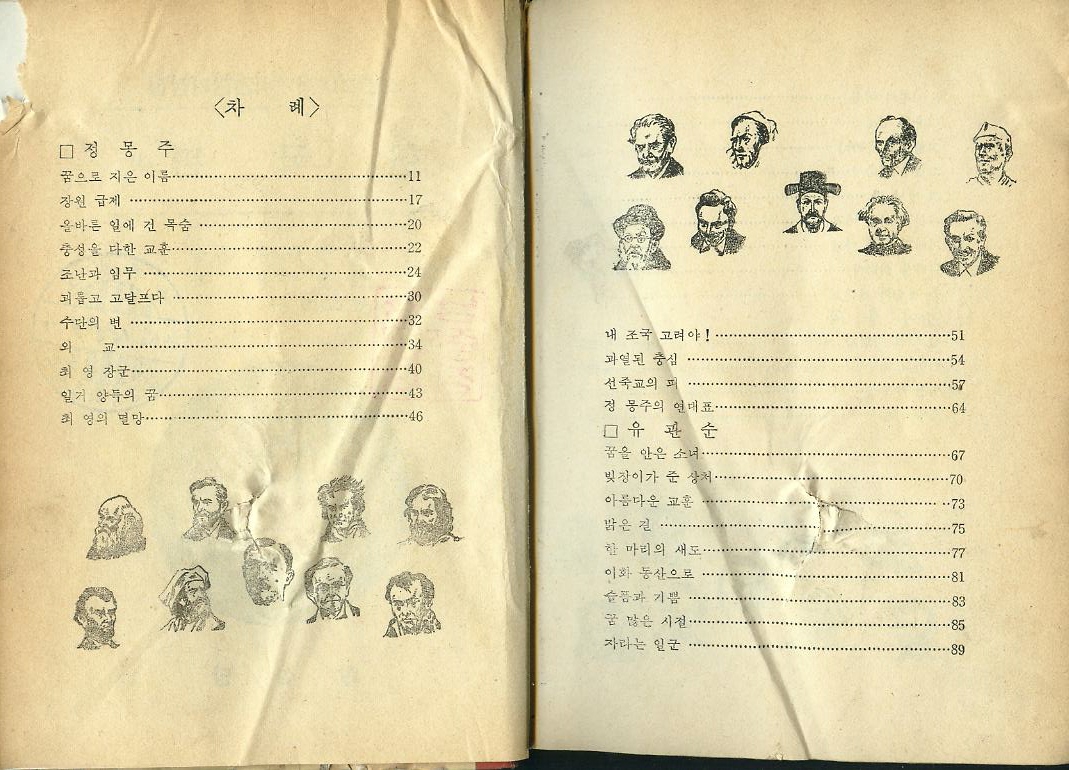 〈차 례〉
□ 정 몽 주
꿈으로 지은 이름 11
장원 급제 17
올바른 일에 건 목숨 20
충성을 다한 교훈 22
조난과 임무 24
괴롭고 고달프다 30
수단의 변 32
외 교 34
최 영 장군 40
일거 양득의 꿈 43
최 영의 멸망 46
내 조국 고려야! 51
과열된 충심 54
선죽교의 피 57
정 몽주의 연대표 64
□ 유 관 순
꿈을 안은 소녀 67
빚장이가 준 상처 70
아름다운 교훈 73
밝은 길 75
한 마리의 새도 77
이화 동산으로 81
슬픔과 기쁨 83
꿈 많은 시절 85
자라는 일군 89